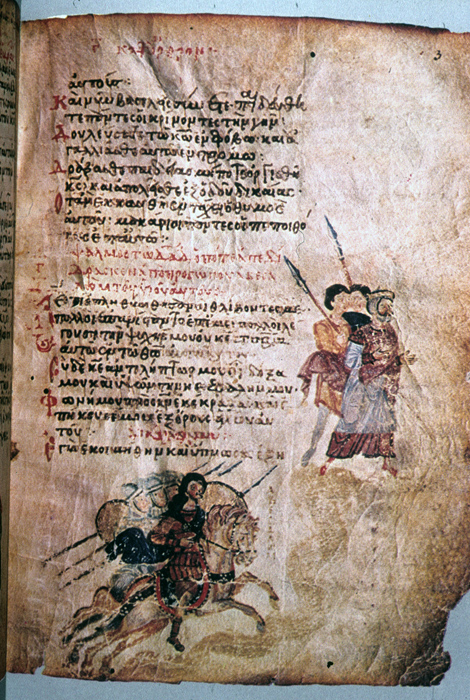 αὐτούς:
Καὶ νῦν βασιλεῖς σύνετε· παιδεύθη
τε πάντες οἱ κρίνοντες τὴν γῆν:
Δουλεύσατε τῷ κῶ ἐν φόβῳ· καὶ ἀ
γαλλιᾶσθε αὐτῷ ἐν τρόμῳ:
Δράξασθε παιδείας μήποτε ὀργισθῇ
κς· καὶ ἀπολεῖσθε ἐξ ὁδοῦ δικαίας·
Ὅταν ἐκκαυθῇ ἐν τάχει ὁ θυμὸς
αὐτοῦ· μακάριοι πάντες οἱ πεποιθό
τες ἐπ' αὐτῷ:
ψαλμὸς τῷ Δαδ ὁπότε ἀπεδί
δρασκεν ἀπὸ προσώπου Ἀβεσσα
λὼμ τοῦ υἱοῦ αὐτοῦ
Κε τί ἐπληθύνθησαν οἱ θλίβοντές με
πολλοὶ ἐπανίστανται ἐπ' ἐμέ· πολλοὶ λέ
γουσι τῇ ψυχῇ μου οὐκ ἔστι σρία
αὐτῷ ἐν τῷ θῶ
Σὺ δὲ κε ἀντιλήπτωρ μου εἶ· δόξα
μου καὶ ὑψῶν τὴν κεφαλήν μου·
Φωνῇ μου πρὸς κν ἐκέκραξα· καὶ ἐ
πήκουσέ μου ἐξ ὄρους ἁγίου αὐ
τοῦ·
Ἐγὼ ἐκοιμήθην καὶ ὕπνωσα· ἐξη
3